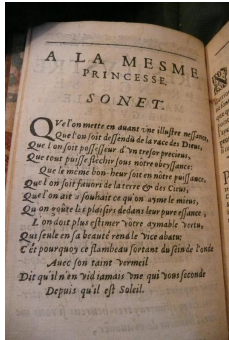 A LA MESME
PRINCESSE.
SONET.
QVe l'on mette en auant vne illustre nessance,
Que l'on soit dessendu de la race des Dieux,
Que l'on soit possesseur d'vn tresor precieux,
Que tout puisse flechir sous notre obeyssance;
Que le mème bon-heur soit en nôtre puissance,
Quel'on soit fauory de la terre & des Cieux,
Quel'on ait a souhait ce qu'on ayme le mieux,
Qu'on goûte les plaisirs dedans leur pure essance,
L'on doit plus estimer vôtre aymable vertu,
Qui seule en sa beauté rend le vice abatu;
C'êt pourquoy ce flambeau sortant du sein de l'onde
Auec son taint vermeil
Dit qu'il n'en vid iamais vne qui vous seconde
Depuis qu'il est Soleil.